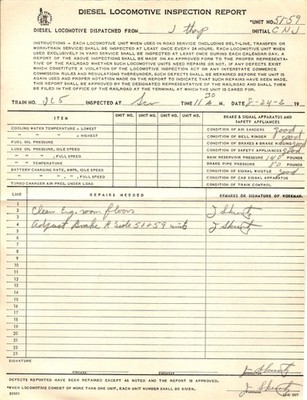 DIESEL LOCOMOTIVE INSPECTION REPORT
*UNIT NO. 51-59
DIESEL LOCOMOTIVE DISPATCHED FROM INITIAL CNJ
INSTRUCTION - EACH LOCOMOTIVE UNIT WHEN USED IN ROAD SERVICE (INCLUDING BELT-LINE, TRANSFER OR
WORK-TRAIN SERVICE) SHALL BE INSPECTED AT LEAST ONCE EVERY 24 HOURS. EACH LOCOMOTIVE UNIT WHEN
USED EXCLUSIVELY IN YARD SERVICE SHALL BE INSPECTED AT LEAST ONCE DURING EACH CALENDAR DAY. A
REPORT OF THE ABOVE INSPECTIONS SHALL BE MADE ON AN APPROVED FORM TO THE PROPER REPRESENTA-
TIVE OF THE RAILROAD WHETHER SUCH LOCOMOTIVE UNIT NEEDS REPAIRS OR NOT. IF ANY DEFECTS EXIST
WHICH CONSTITUTE A VIOLATION OF THE LOCOMOTIVE INSPECTION ACT OR ANY INTERSTATE COMMERCE
COMMISSION RULES AND REGULATIONS THEREUNDER, SUCH DEFECTS SHALL BE REPAIRED BEFORE THE UNIT IS
AGAIN USED AND PROPER NOTATION MADE ON THE REPORT TO INDICATE THAT SUCH REPAIRS HAVE BEEN MADE.
THIS REPORT SHALL BE APPROVED BY THE PROPER REPRESENTATIVE OF THE RAILROAD AND SHALL THEN
BE FILED IN THE OFFICE OF THE RAILROAD AT THE TERMINAL AT WHICH THE UNIT IS CARED FOR.
TRAIN NO. JC5 INSPECTED AT Scr TIME 11 A. M. DATE 8-24-6 19
ITEM UNIT NO. UNIT NO. UNIT NO. UNIT NO. BRAKE & SIGNAL APPARATUS AND SAFETY APPLIANCES
COOLING WATER TEMPERATURE - LOWEST CONDITION OF AIR SANDERS good
" " " - HIGHEST CONDITION OF BELL RINGER good
FUEL OIL PRESSURE CONDITION OF BRAKES & BRAKE RIGGING good
LUBE OIL PRESSURE, IDLE SPEED CONDITION OF SAFETY APPLIANCES good
" " " , FULL SPEED MAIN RESERVOIR PRESSURE 140 POUNDS
" " TEMPERATURE BRAKE PIPE PRESSURE 70 POUNDS
BATTERY CHARGING RATE, AMPS, IDLE SPEED CONDITION OF SIGNAL WHISTLE good
" " " " , FULL SPEED CONDITION OF CAB SIGNAL APPARATUS
TURBO CHARGER AIR PRES. UNDER LOAD CONDITION OF TRAIN CONTROL
LINE REPAIRS NEEDED REMARKS OR SIGNATURE OF WORKMAN
1
2
3 Clean Eng. room floors
4 Adjust Brake R side 51 & 59 units
5
6
7
SIGNATURE
DEFECTS REPORTED HAVE BEEN REPAIRED EXCEPT AS NOTED AND THE REPORT IS APPROVED.
*WHEN LOCOMOTIVE CONSIST OF MORE THAN ONE UNIT, EACH UNIT NUMBER SHALL BE GIVEN.